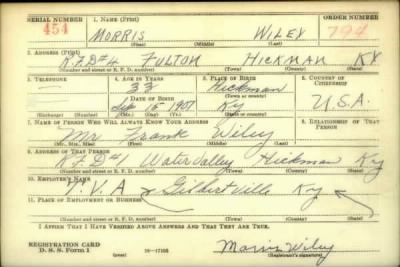 SERIAL NUMBER 1. NAME (Print) ORDER NUMBER
454 MORRIS WILEY 794
(First) (Middle) (Last)
2. ADDRESS (Print)
R.F.D#4 FULTON HICKMAN KY
(Number and street or R. F. D. number) (Town) (County) (State)
3. TELEPHONE 4. AGE IN YEARS 5. PLACE OF BIRTH 6. COUNTRY OF CITIZENSHIP
— 33 Hickman
DATE OF BIRTH (Town or county)
15 1907 Ky U.S.A.
(Exchange) (Number) (Mo.) (Day) (Yr.) (State or country)
7. NAME OF PERSON WHO WILL ALWAYS KNOW YOUR ADDRESS 8. RELATIONSHIP OF THAT PERSON
Mr Frank Wiley
(Mr., Mrs., Miss) (First) (Middle) (Last)
9. ADDRESS OF THAT PERSON
R.F.D#1 Water Valley Hickman Ky
(Number and street or R. F. D. number) (Town) (County) (State)
10. EMPLOYER'S NAME
T.V.A Gilbertville Ky
11. PLACE OF EMPLOYMENT OR BUSINESS
(Number and street or R. F. D. number) (Town) (County) (State)
I AFFIRM THAT I HAVE VERIFIED ABOVE ANSWERS AND THAT THEY ARE TRUE.
REGISTRATION CARD
D. S. S. Form 1 16—17105 Morris Wiley
(Registrant's signature)